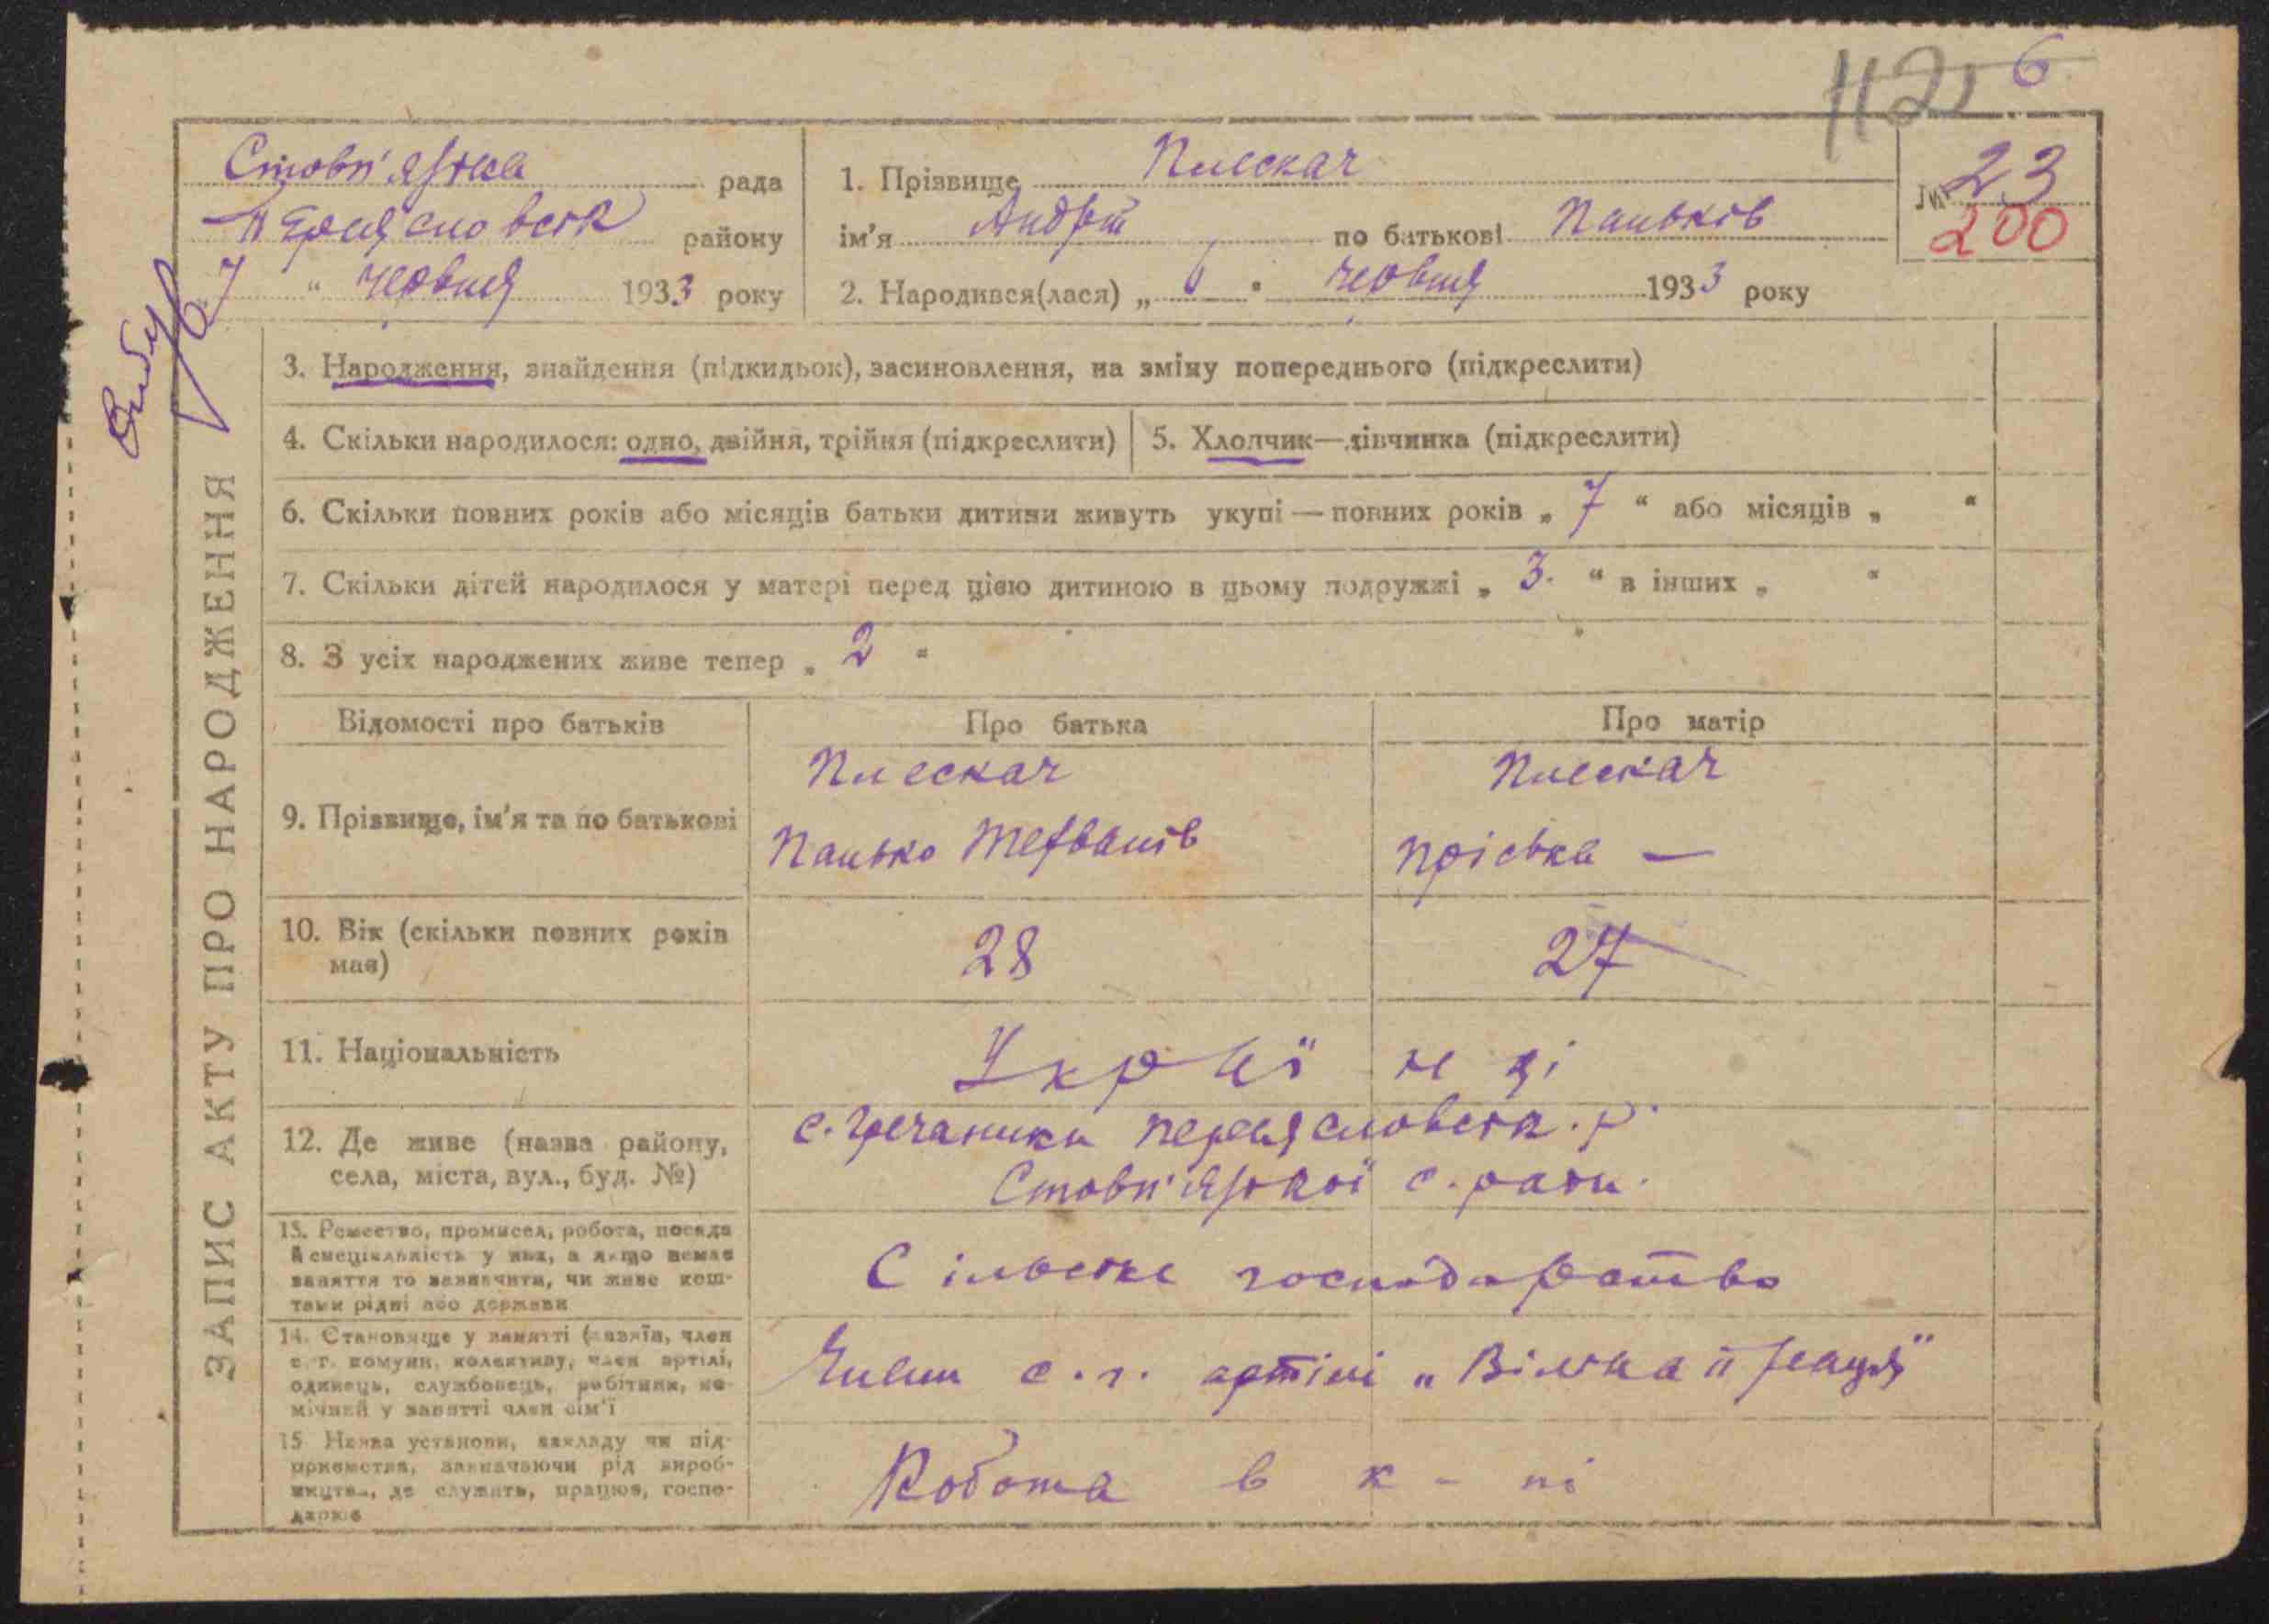 112 6
Стовп'язька рада
Переяславськ району
7 " червня 1933 року
1. Прізвище Плескач
ім'я Андрій по батькові Паньків
2. Народився(лася) „ 6 " червня 1933 року
№ 23
200
ЗАПИС АКТУ ПРО НАРОДЖЕННЯ
3. Народження, знайдення (підкидьок), засиновлення, на зміну попереднього (підкреслити)
4. Скільки народилося: одно, двійня, трійня (підкреслити)
5. Хлопчик—дівчинка (підкреслити)
6. Скільки повних років або місяців батьки дитини живуть укупі — повних років „ 7 “ або місяців „ “
7. Скільки дітей народилося у матері перед цією дитиною в цьому подружжі „ 3. “ в інших „ “
8. З усіх народжених живе тепер „ 2 “
Відомості про батьків Про батька Про матір
9. Прізвище, ім'я та по батькові
Плескач
Панько
Плескач
Пріська —
10. Вік (скільки повних років має)
28 27
11. Національність
Українці
12. Де живе (назва району,
села, міста, вул., буд. №)
с. Гречаники Переяславськ. р.
Стовп'язької с. ради.
13. Ремество, промисел, робота, посада
й спеціяльність у них, а якщо немає
заняття то зазначити, чи живе кош-
тами рідні або держави
Сільське господарство
14. Становище у занятті (хазяїн, член
с. г. комуни, колективу, член артілі,
одинець, службовець, робітник, по-
мічний у занятті член сім'ї
Члени с. г. артілі „Вільна праця"
15 Назва установи, закладу чи під-
приємства, зазначаючи рід вироб-
ництва, де служить, працює, госпо-
дарює
Робота в к-пі